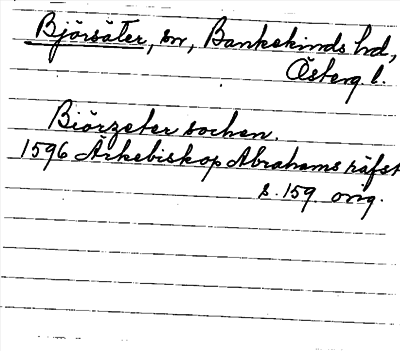 Björsäter, sn, Bankekinds hd,
Österg. l.
Biörzeter sochen.
1596 Ärkebiskop Abrahams räfst
s. 159. orig.